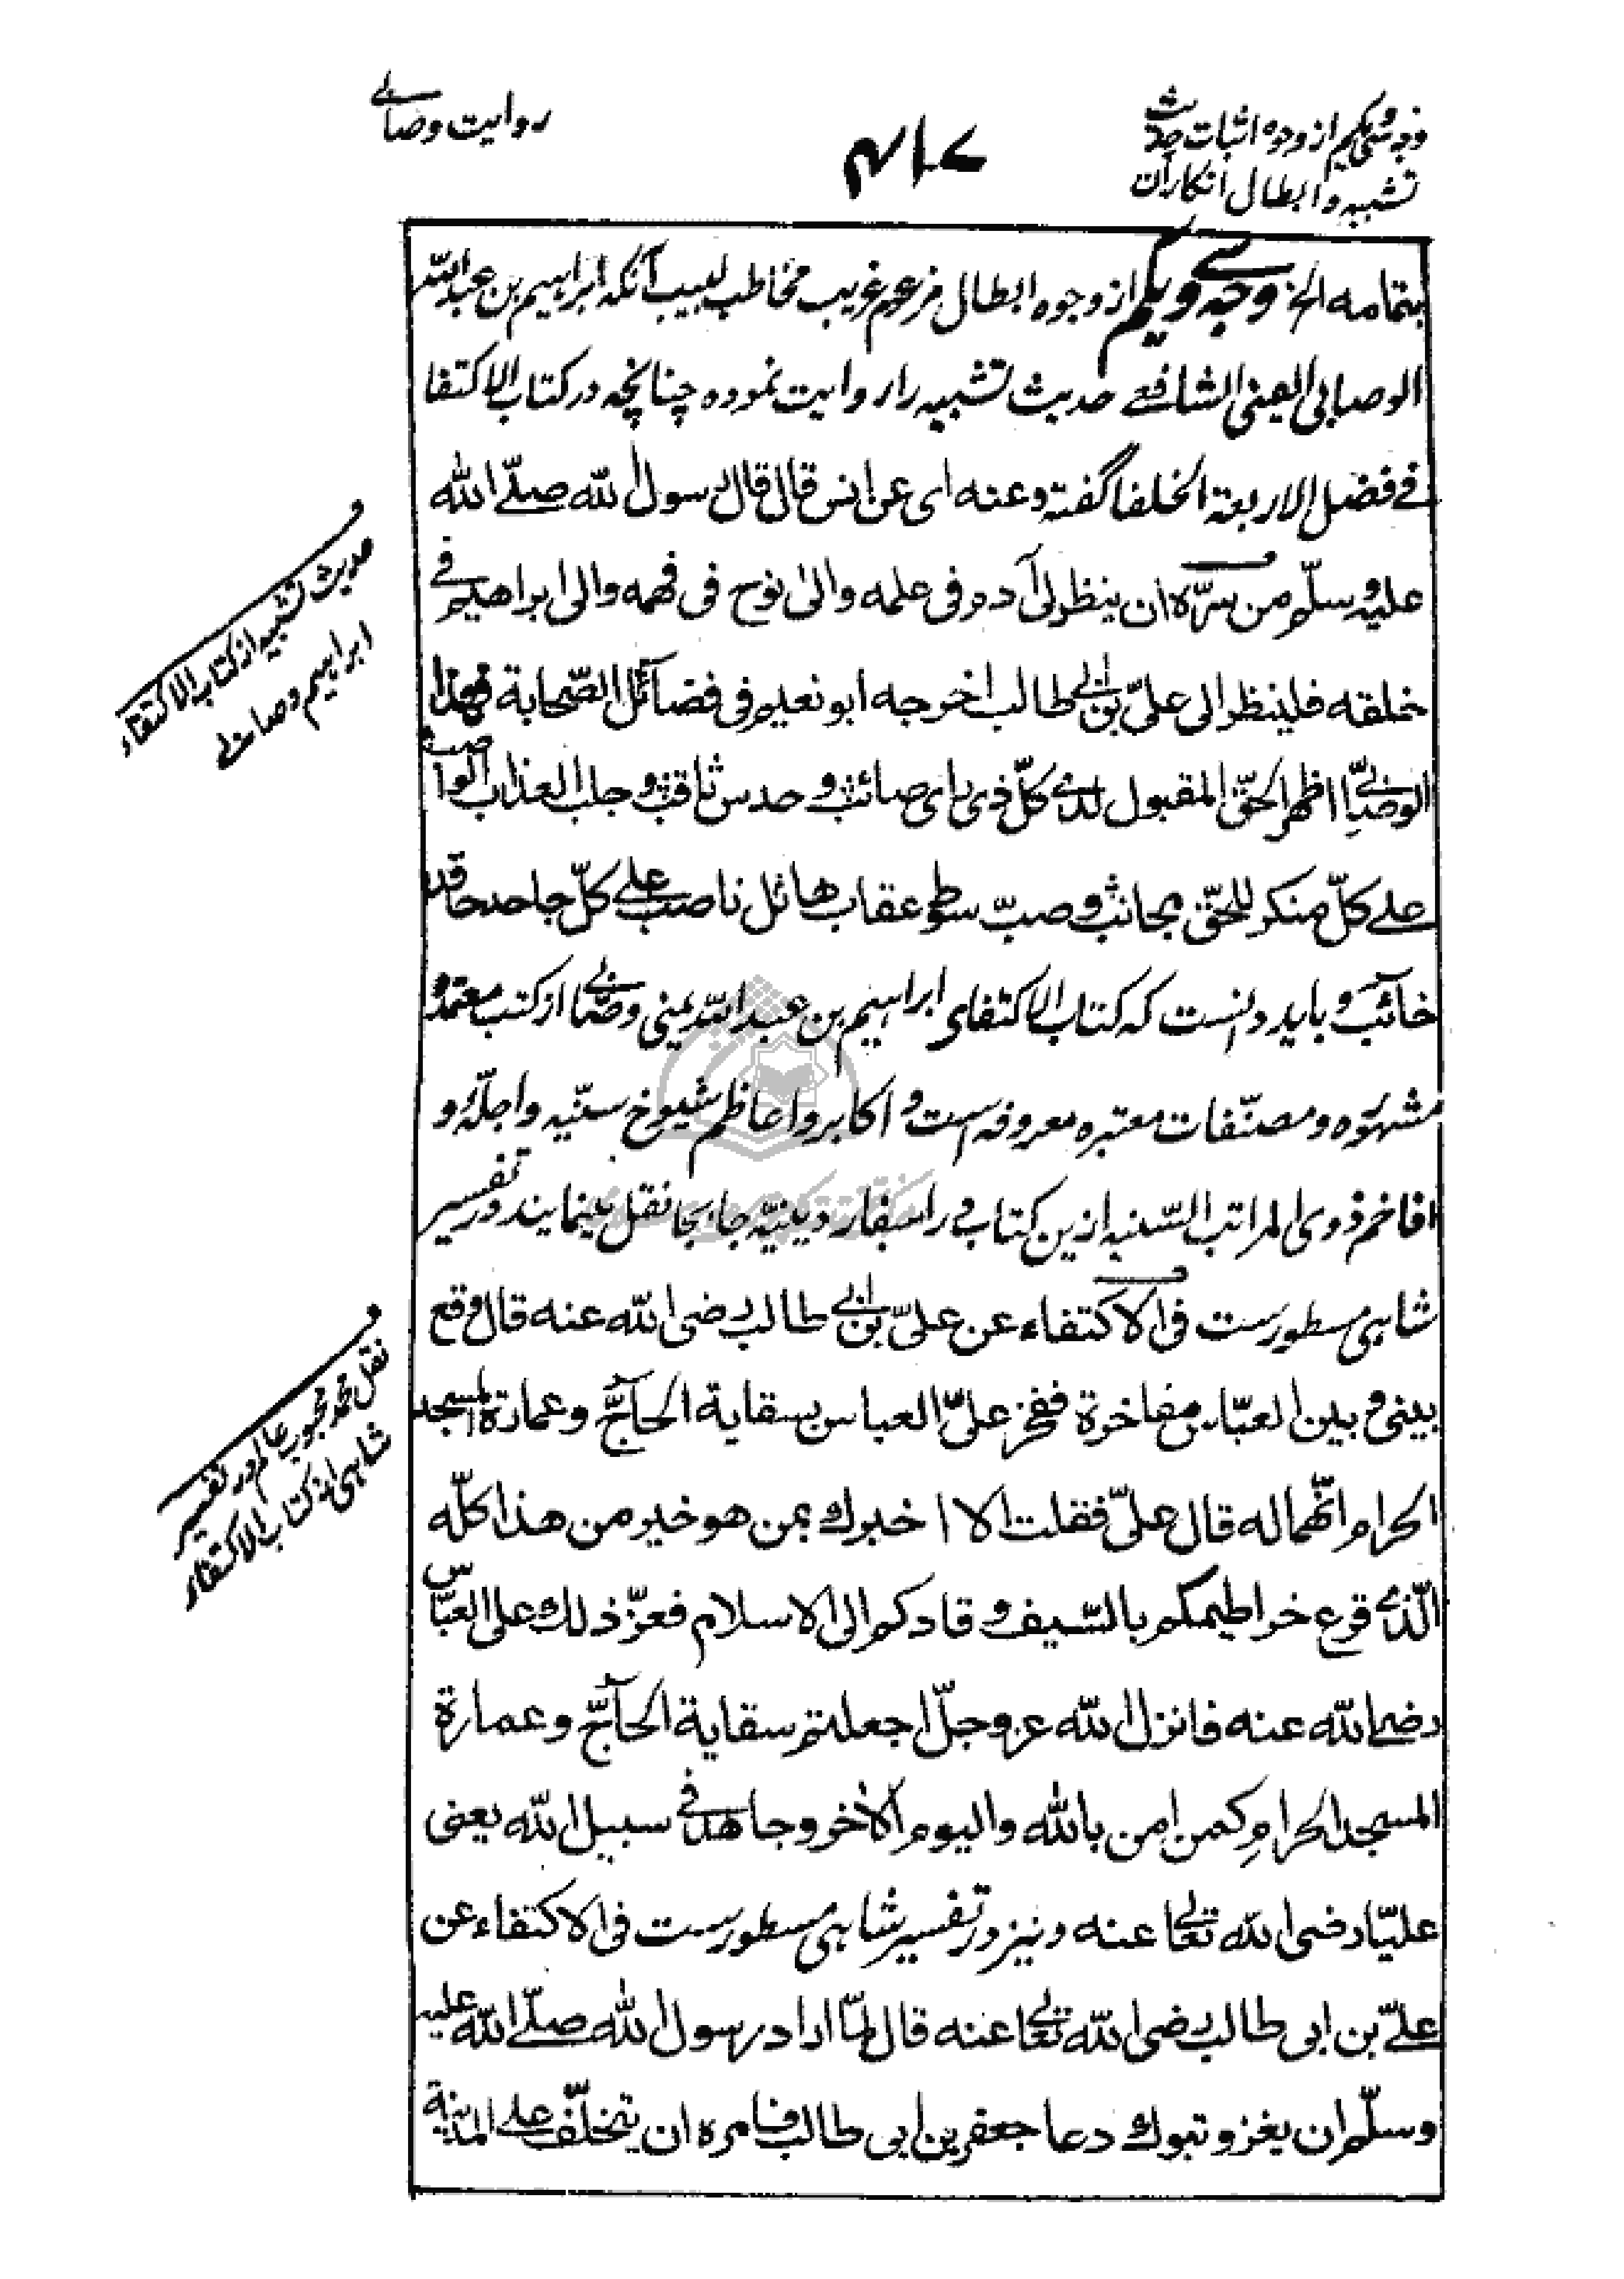 وجه سی و یکم از وجوه اثبات حدیث
تشبیه و ابطال انکار آن
۴۱۷
روایت وصابی
بتمامه الخ وجه سی و یکم از وجوه ابطال مزعوم غریب مخاطب لبیب آنکه ابراهیم بن عبد الله
الوصابی الیمنی الشافعی حدیث تشبیه را روایت نموده چنانچه در کتاب الاکتفا
فی فضل الاربعة الخلفا گفته و عنه ای عن انس قال قال رسول الله صلّی الله
علیه و سلّم من سرّه ان ینظر الی آدم فی علمه والی نوح فی فهمه والی ابراهیم فی
خلقه فلینظر الی علیّ بن ابی طالب اخرجه ابو نعیم فی فضائل الصّحابة فهذا
الوصّابی اظهر الحقّ المقبول لدی کلّ ذی رای صائب و حدس ثاقب و جلب العذاب الواصب
علی کلّ منکر للحقّ مجانب و صبّ سوط عقاب هائل ناصب علی کلّ جاحد حاقد
خائب و باید دانست که کتاب الاکتفای ابراهیم بن عبد الله یمنی وصّابی از کتب معتمده
مشهوره و مصنّفات معتبره معروفه است و اکابر و اعاظم شیوخ سنّیه و اجلّه و
افاخم ذوی المراتب السّنیه ازین کتاب در اسفار دینیّه جابجا نقل مینمایند در تفسیر
شاهی مسطورست فی الاکتفاء عن علیّ بن ابی طالب رضی الله عنه قال وقع
بینی و بین العبّاس مفاخرة ففخر علیّ العباس بسقایة الحاجّ و عمارة المسجد
الحرام انّهما له قال علیّ فقلت الا اخبرك بمن هو خیر من هذا کلّه
الّذی قرع خراطیمکم بالسّیف و قادکم الی الاسلام فعزّ ذلك علی العبّاس
رضی الله عنه فانزل الله عز وجلّ اجعلتم سقایة الحاجّ و عمارة
المسجد الحرامِ کمن امن بالله والیوم الاخر وجاهد فی سبیل الله یعنی
علیّا رضی الله تعالی عنه و نیز در تفسیر شاهی مسطورست فی الاکتفاء عن
علیّ بن ابی طالب رضی الله تعالی عنه قال لمّا اراد رسول الله صلّی الله علیه
وسلّم ان یغزو تبوك دعا جعفر بن ابی طالب فامره ان یتخلّف علی المدینة
حدیث تشبیه از کتاب الاکتفاء
ابراهیم وصابی
نقل محمد محبوب عالم در تفسیر
شاهی از کتاب الاکتفاء